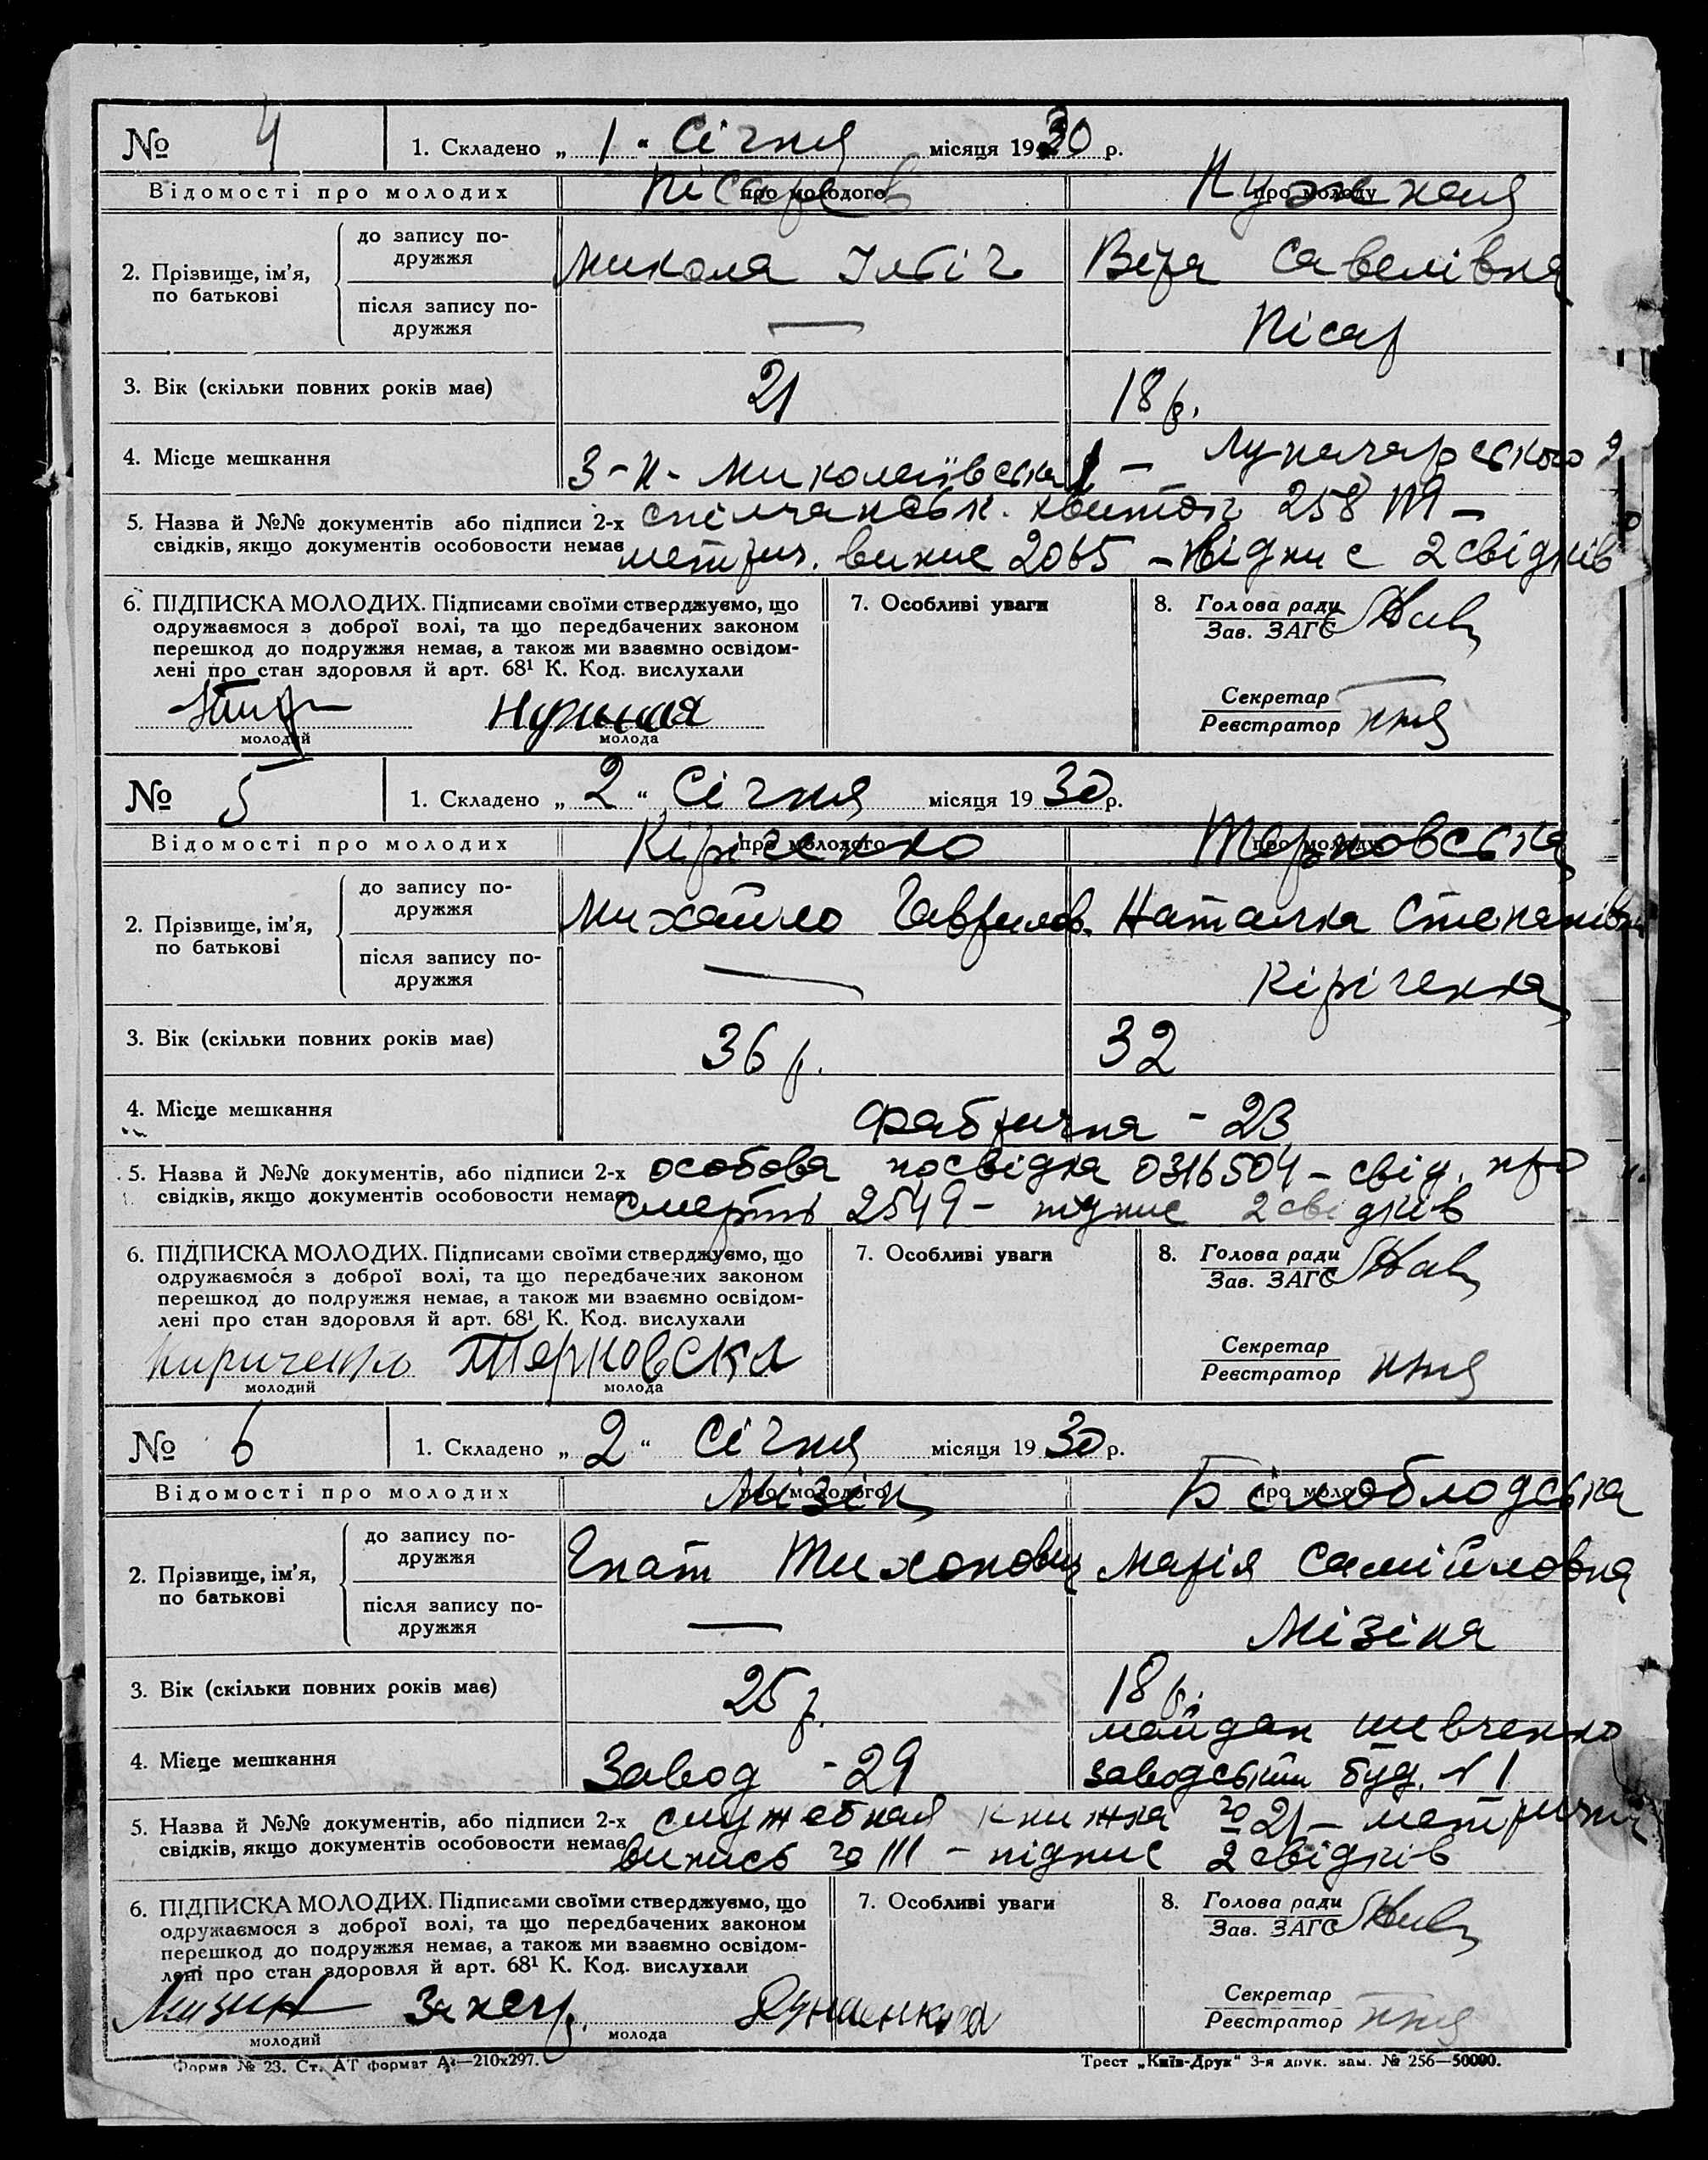 № 4 1. Складено „ 1 “ Січня місяця 1930 р.
Відомості про молодих про молодого про молоду
Пісарев
2. Прізвище, ім’я, по батькові
до запису подружжя
Микола Ілліч Віра Савелівна
після запису подружжя
— Пісар
3. Вік (скільки повних років має) 21 18 р.
4. Місце мешкання З-н- Миколаївська 1 – Луначарського 9
5. Назва й №№ документів або підписи 2-х спілчанськ. квиток 258
свідків, якщо документів особовости немає метрич. випис 2065 – підпис 2 свідків
6. ПІДПИСКА МОЛОДИХ. Підписами своїми стверджуємо, що
одружаємося з доброї волі, та що передбачених законом
перешкод до подружжя немає, а також ми взаємно освідом-
лені про стан здоровля й арт. 68¹ К. Код. вислухали
молодий молода
7. Особливі уваги
8. Голова ради
Зав. ЗАГС
Секретар
Реєстратор
№ 5 1. Складено „ 2 “ Січня місяця 1930 р.
Відомості про молодих про молодого про молоду
Кіріченко Терновська
2. Прізвище, ім’я, по батькові
до запису подружжя
Михайло Гаврилов. Наталка Степанівна
після запису подружжя
— Кіріченко
3. Вік (скільки повних років має) 36 р. 32
4. Місце мешкання Фабрична - 23
5. Назва й №№ документів, або підписи 2-х особова посвідка 0316504 – свід. про
свідків, якщо документів особовости немає смерть 2549 – підпис 2 свідків
6. ПІДПИСКА МОЛОДИХ. Підписами своїми стверджуємо, що
одружаємося з доброї волі, та що передбачених законом
перешкод до подружжя немає, а також ми взаємно освідом-
лені про стан здоровля й арт. 68¹ К. Код. вислухали
Кириченко Терновска
молодий молода
7. Особливі уваги
8. Голова ради
Зав. ЗАГС
Секретар
Реєстратор
№ 6 1. Складено „ 2 “ Січня місяця 1930 р.
Відомості про молодих про молодого про молоду
Мізін Білоблодська
2. Прізвище, ім’я, по батькові
до запису подружжя
Гнат Тихонович Марія Самійловна
після запису подружжя
— Мізіна
3. Вік (скільки повних років має) 25 р. 18 р.
майдан Шевченко
4. Місце мешкання Завод - 29 заводський буд. № 1
5. Назва й №№ документів, або підписи 2-х служебная книжка № 21 – метрична
свідків, якщо документів особовости немає випись № III – підпис 2 свідків
6. ПІДПИСКА МОЛОДИХ. Підписами своїми стверджуємо, що
одружаємося з доброї волі, та що передбачених законом
перешкод до подружжя немає, а також ми взаємно освідом-
лені про стан здоровля й арт. 68¹ К. Код. вислухали
Мизин
молодий молода
7. Особливі уваги
8. Голова ради
Зав. ЗАГС
Секретар
Реєстратор
Форма № 23. Ст. АТ формат А₄—210х297. Трест „Київ-Друк“ 3-я друк. зам. № 256—50000.